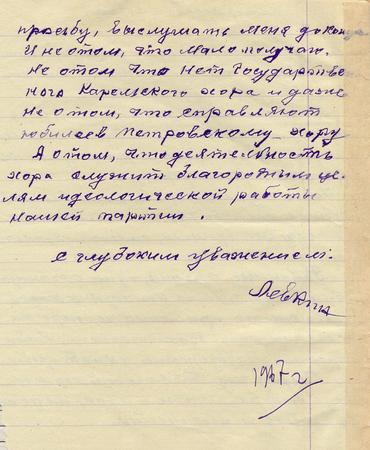 просьбу, выслушать меня до конца
И не о том, что мало получаю.
Не о том что нет Государстве
ного Карельского хора и даже
не о том, что справляют
юбилеев Петровскому хору
А о том, что деятельность
хора служит благородным це
лям идеологической работы
нашей партии.
С глубоким уважением:
Левкин
1967 г